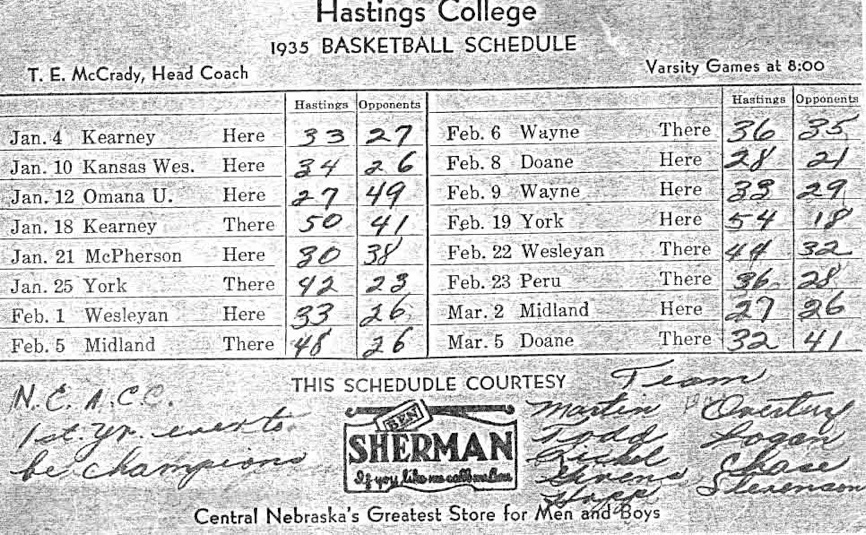 Hastings College
1935 BASKETBALL SCHEDULE
T. E. McCrady, Head Coach
Varsity Games at 8:00
Hastings Opponents
Jan. 4 Kearney Here 33 27
Jan. 10 Kansas Wes. Here 34 26
Jan. 12 Omana U. Here 27 49
Jan. 18 Kearney There 50 41
Jan. 21 McPherson Here 30 38
Jan. 25 York There 42 23
Feb. 1 Wesleyan Here 33 26
Feb. 5 Midland There 48 26
Hastings Opponents
Feb. 6 Wayne There 36 35
Feb. 8 Doane Here 28 21
Feb. 9 Wayne Here 33 29
Feb. 19 York Here 54 18
Feb. 22 Wesleyan There 44 32
Feb. 23 Peru There 36 28
Mar. 2 Midland Here 27 26
Mar. 5 Doane There 32 41
N.E.A.C.C.
1st. yr. ever to
be champions
THIS SCHEDUDLE COURTESY
BEN
SHERMAN
If you like me call me Ben
Central Nebraska's Greatest Store for Men and Boys
Team
Martin Overturf
Todd Logan
Chase
Givens Stevenson
Hopp